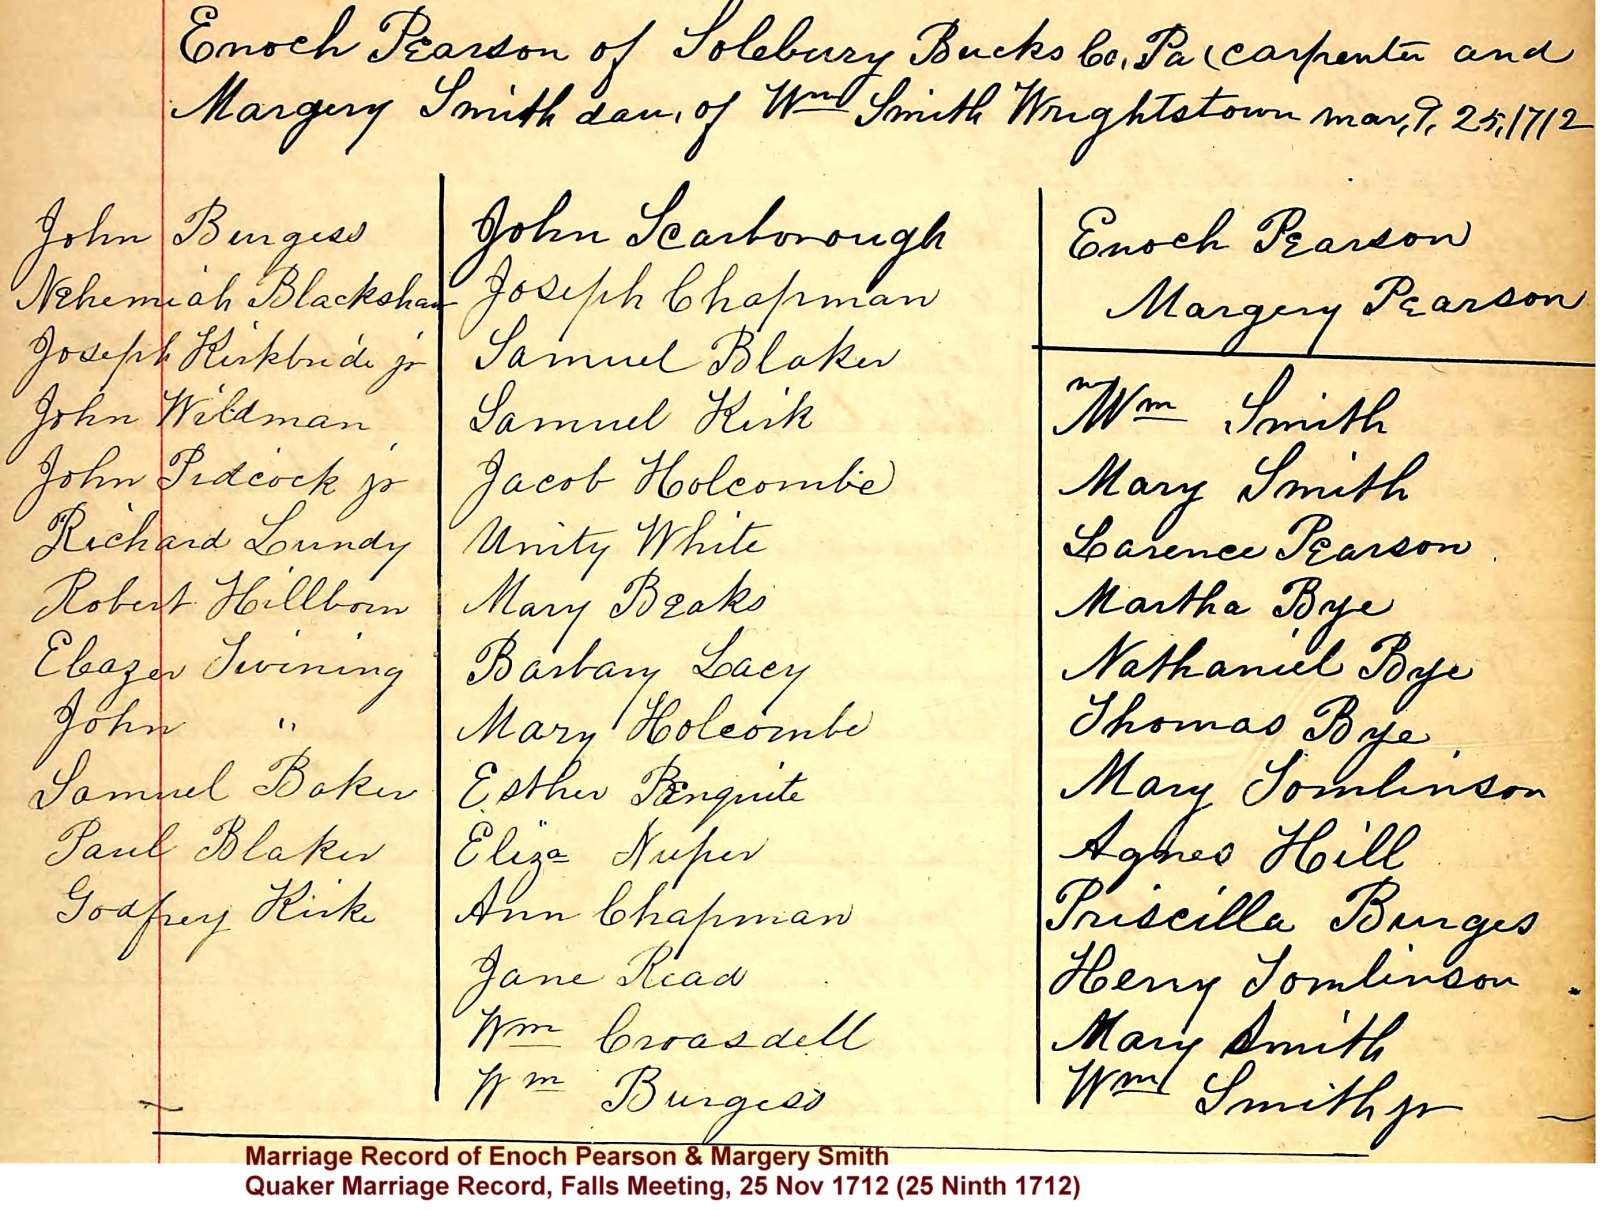 Enoch Pearson of Solebury Bucks Co. Pa (carpenter and
Margery Smith dau. of Wm Smith Wrightstown mar. 9, 25, 1712
John Burgess
Nehemiah Blackshaw
Joseph Kirkbride jr
John Wildman
John Pidcock jr
Richard Lundy
Robert Hillborn
Eleazer Twining
John "
Samuel Baker
Paul Blaker
Godfrey Kirke
John Scarborough
Joseph Chapman
Samuel Blaker
Samuel Kirk
Jacob Holcombe
Unity White
Mary Beaks
Barbary Lacy
Mary Holcombe
Esther Penquite
Eliza
Ann Chapman
Jane Read
Wm Croasdell
Wm Burgess
Enoch Pearson
Margery Pearson
Wm Smith
Mary Smith
Larence Pearson
Martha Bye
Nathaniel Bye
Thomas Bye
Mary Tomlinson
Agnes Hill
Priscilla Burges
Henry Tomlinson
Mary Smith
Wm Smith jr
Marriage Record of Enoch Pearson & Margery Smith
Quaker Marriage Record, Falls Meeting, 25 Nov 1712 (25 Ninth 1712)